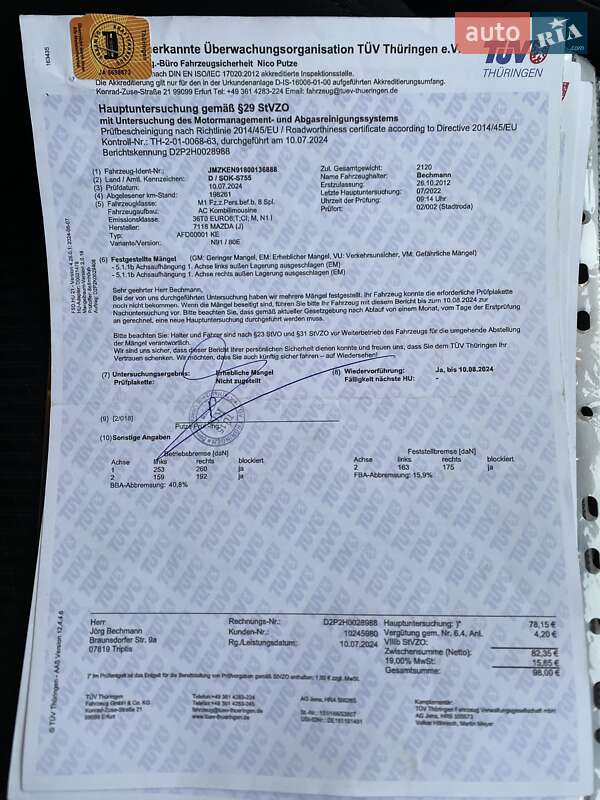 163435
auto RIA.com
erkannte Überwachungsorganisation TÜV Thüringen e.V.
TÜV
THÜRINGEN
.-Büro Fahrzeugsicherheit Nico Putze
nach DIN EN ISO/IEC 17020:2012 akkreditierte Inspektionsstelle.
Die Akkreditierung gilt nur für den in der Urkundenanlage D-IS-16006-01-00 aufgeführten Akkreditierungsumfang.
Konrad-Zuse-Straße 21 99099 Erfurt Tel: +49 361 4283-224 Email: fahrzeug@tuev-thueringen.de
Hauptuntersuchung gemäß §29 StVZO
mit Untersuchung des Motormanagement- und Abgasreinigungssystems
Prüfbescheinigung nach Richtlinie 2014/45/EU / Roadworthiness certificate according to Directive 2014/45/EU
Kontroll-Nr.: TH-2-01-0068-63, durchgeführt am 10.07.2024
Berichtskennung D2P2H0028988
(1) Fahrzeug-Ident-Nr.: JMZKEN91800136888 Zul. Gesamtgewicht: 2120
(2) Land / Amtl. Kennzeichen: D / SOK-S755 Name Fahrzeughalter: Bechmann
(3) Prüfdatum: 10.07.2024 Erstzulassung: 26.10.2012
(4) Abgelesener km-Stand: 198261 Letzte Hauptuntersuchung: 07/2022
(5) Fahrzeugklasse: M1 Pz.z.Pers.bef.b. 8 Spl. Uhrzeit der Prüfung: 09:14 Uhr
Fahrzeugaufbau: AC Kombilimousine Prüfort: 02/002 (Stadtroda)
Emissionsklasse: 36T0 EURO6;T;CI; M, N1 I
Hersteller: 7118 MAZDA (J)
Typ: AFD00001 KE
Variante/Version: N91 / 80E
(6) Festgestellte Mängel (GM: Geringer Mangel, EM: Erheblicher Mangel, VU: Verkehrsunsicher, VM: Gefährliche Mängel)
- 5.1.1b Achsaufhängung 1. Achse links außen Lagerung ausgeschlagen (EM)
- 5.1.1b Achsaufhängung 1. Achse rechts außen Lagerung ausgeschlagen (EM)
Sehr geehrter Herr Bechmann,
Bei der von uns durchgeführten Untersuchung haben wir mehrere Mängel festgestellt. Ihr Fahrzeug konnte die erforderliche Prüfplakette
noch nicht bekommen. Wenn die Mängel beseitigt sind, führen Sie bitte Ihr Fahrzeug mit diesem Bericht bis zum 10.08.2024 zur
Nachuntersuchung vor. Bitte beachten Sie, dass gemäß aktueller Gesetzgebung nach Ablauf von einem Monat, vom Tage der Erstprüfung
an gerechnet, eine neue Hauptuntersuchung durchgeführt werden muss.
Bitte beachten Sie: Halter und Fahrer sind nach §23 StVO und §31 StVZO vor Weiterbetrieb des Fahrzeugs für die umgehende Abstellung
der Mängel verantwortlich.
Wir sind uns sicher, dass dieser Bericht Ihrer persönlichen Sicherheit dienen konnte und freuen uns, dass Sie dem TÜV Thüringen Ihr
Vertrauen schenken. Wir möchten, dass Sie auch künftig sicher fahren – auf Wiedersehen!
(7) Untersuchungsergebnis: Erhebliche Mängel (8) Wiedervorführung: Ja, bis 10.08.2024
Prüfplakette: Nicht zugeteilt Fälligkeit nächste HU: -
(9) [2/018]
(10) Sonstige Angaben
Betriebsbremse [daN] Feststellbremse [daN]
Achse links rechts blockiert Achse links rechts blockiert
1 253 260 ja 2 163 175 ja
2 159 192 ja FBA-Abbremsung: 15,9%
BBA-Abbremsung: 40,8%
Herr Rechnungs-Nr.: D2P2H0028988 Hauptuntersuchung: )* 78,15 €
Jörg Bechmann Kunden-Nr.: 10245980 Vergütung gem. Nr. 6.4. Anl. 4,20 €
Braunsdorfer Str. 9a Rg./Leistungsdatum: 10.07.2024 VIIIb StVZO:
07819 Triptis Zwischensumme (Netto): 82,35 €
19,00% MwSt: 15,65 €
Gesamtsumme: 98,00 €
TÜV Thüringen
Fahrzeug GmbH & Co. KG
Konrad-Zuse-Straße 21
99099 Erfurt
Telefon:+49 361 4283-224
Telefax:+49 361 4283-245
fahrzeug@tuev-thueringen.de
www.tuev-thueringen.de
Komplementär:
TÜV Thüringen Fahrzeug Verwaltungsgesellschaft mbH
© TÜV Thüringen - AAS Version 12.4.4.6